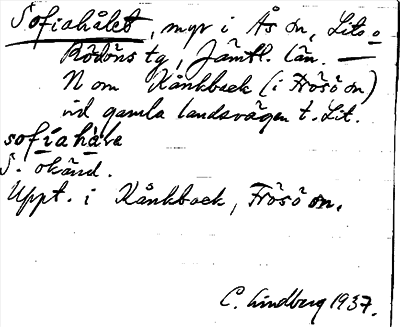 Sofiahålet, myr i Ås sn, Lits o
Rödöns tg, Jämtl. län. —
N om Kånkback (i Frösö sn)
vid gamla landsvägen t. Lit.
sofiahåle
S. okänd.
Uppt. i Kånkback, Frösö sn.
C. Lindberg 1937.